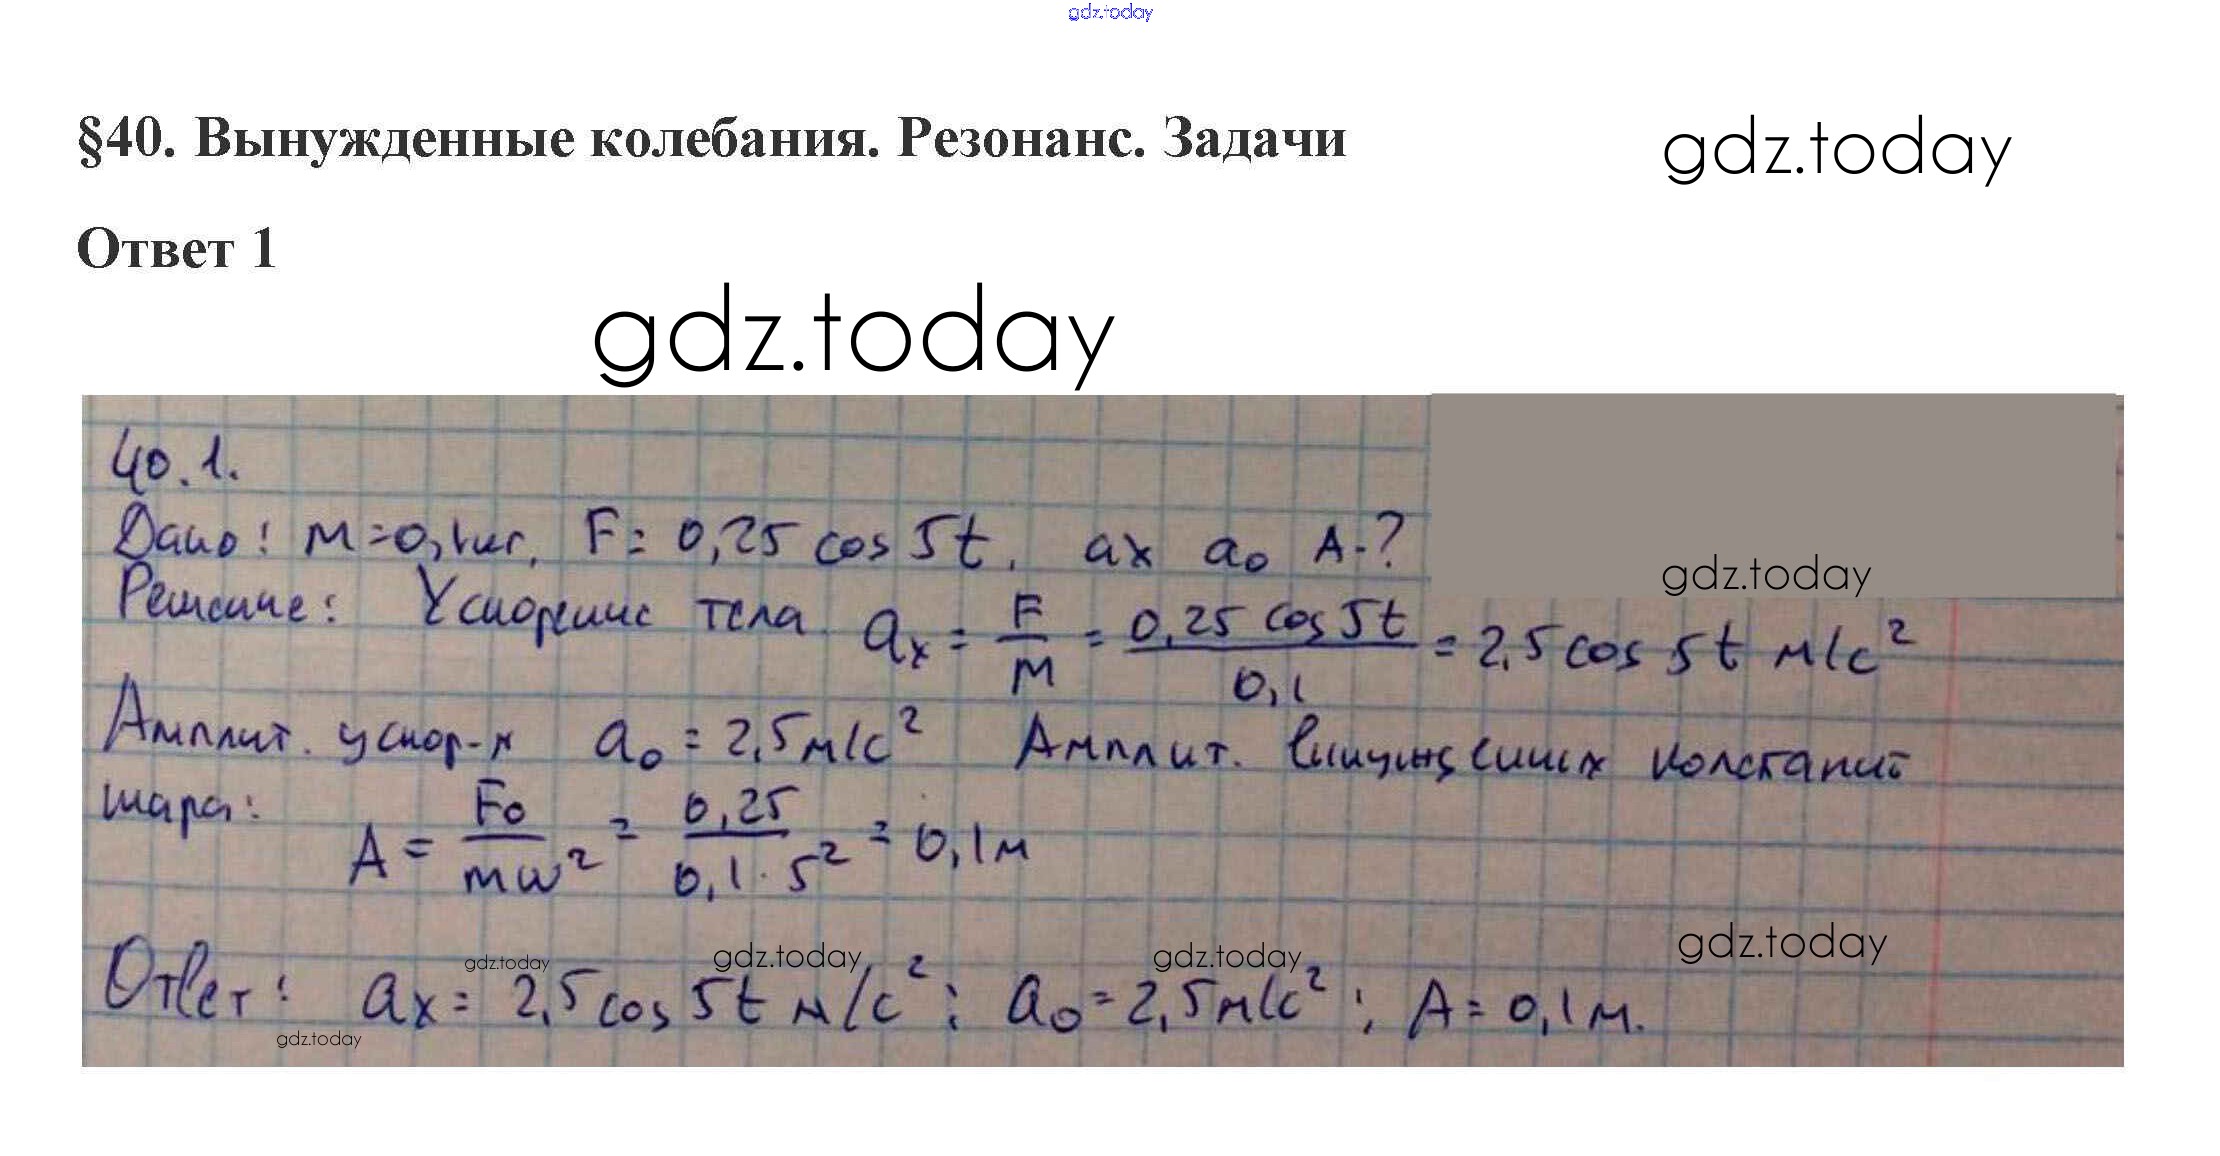 gdz.today
§40. Вынужденные колебания. Резонанс. Задачи
gdz.today
Ответ 1
gdz.today
40.1.
Дано: м=0,1кг, F= 0,25 cos 5t, ax a₀ A-?
gdz.today
Решение: Ускорение тела aₓ = F/м = 0,25 cos 5t/0,1 = 2,5 cos 5t м/с²
Амплит. ускор-я a₀ = 2,5м/с² Амплит. вынужденных колебаний
шара: A = F₀/mω² = 0,25/0,1·5² = 0,1м
gdz.today
gdz.today
gdz.today
gdz.today
Ответ: aₓ= 2,5 cos 5t м/с²; a₀=2,5м/с²; A=0,1м.
gdz.today